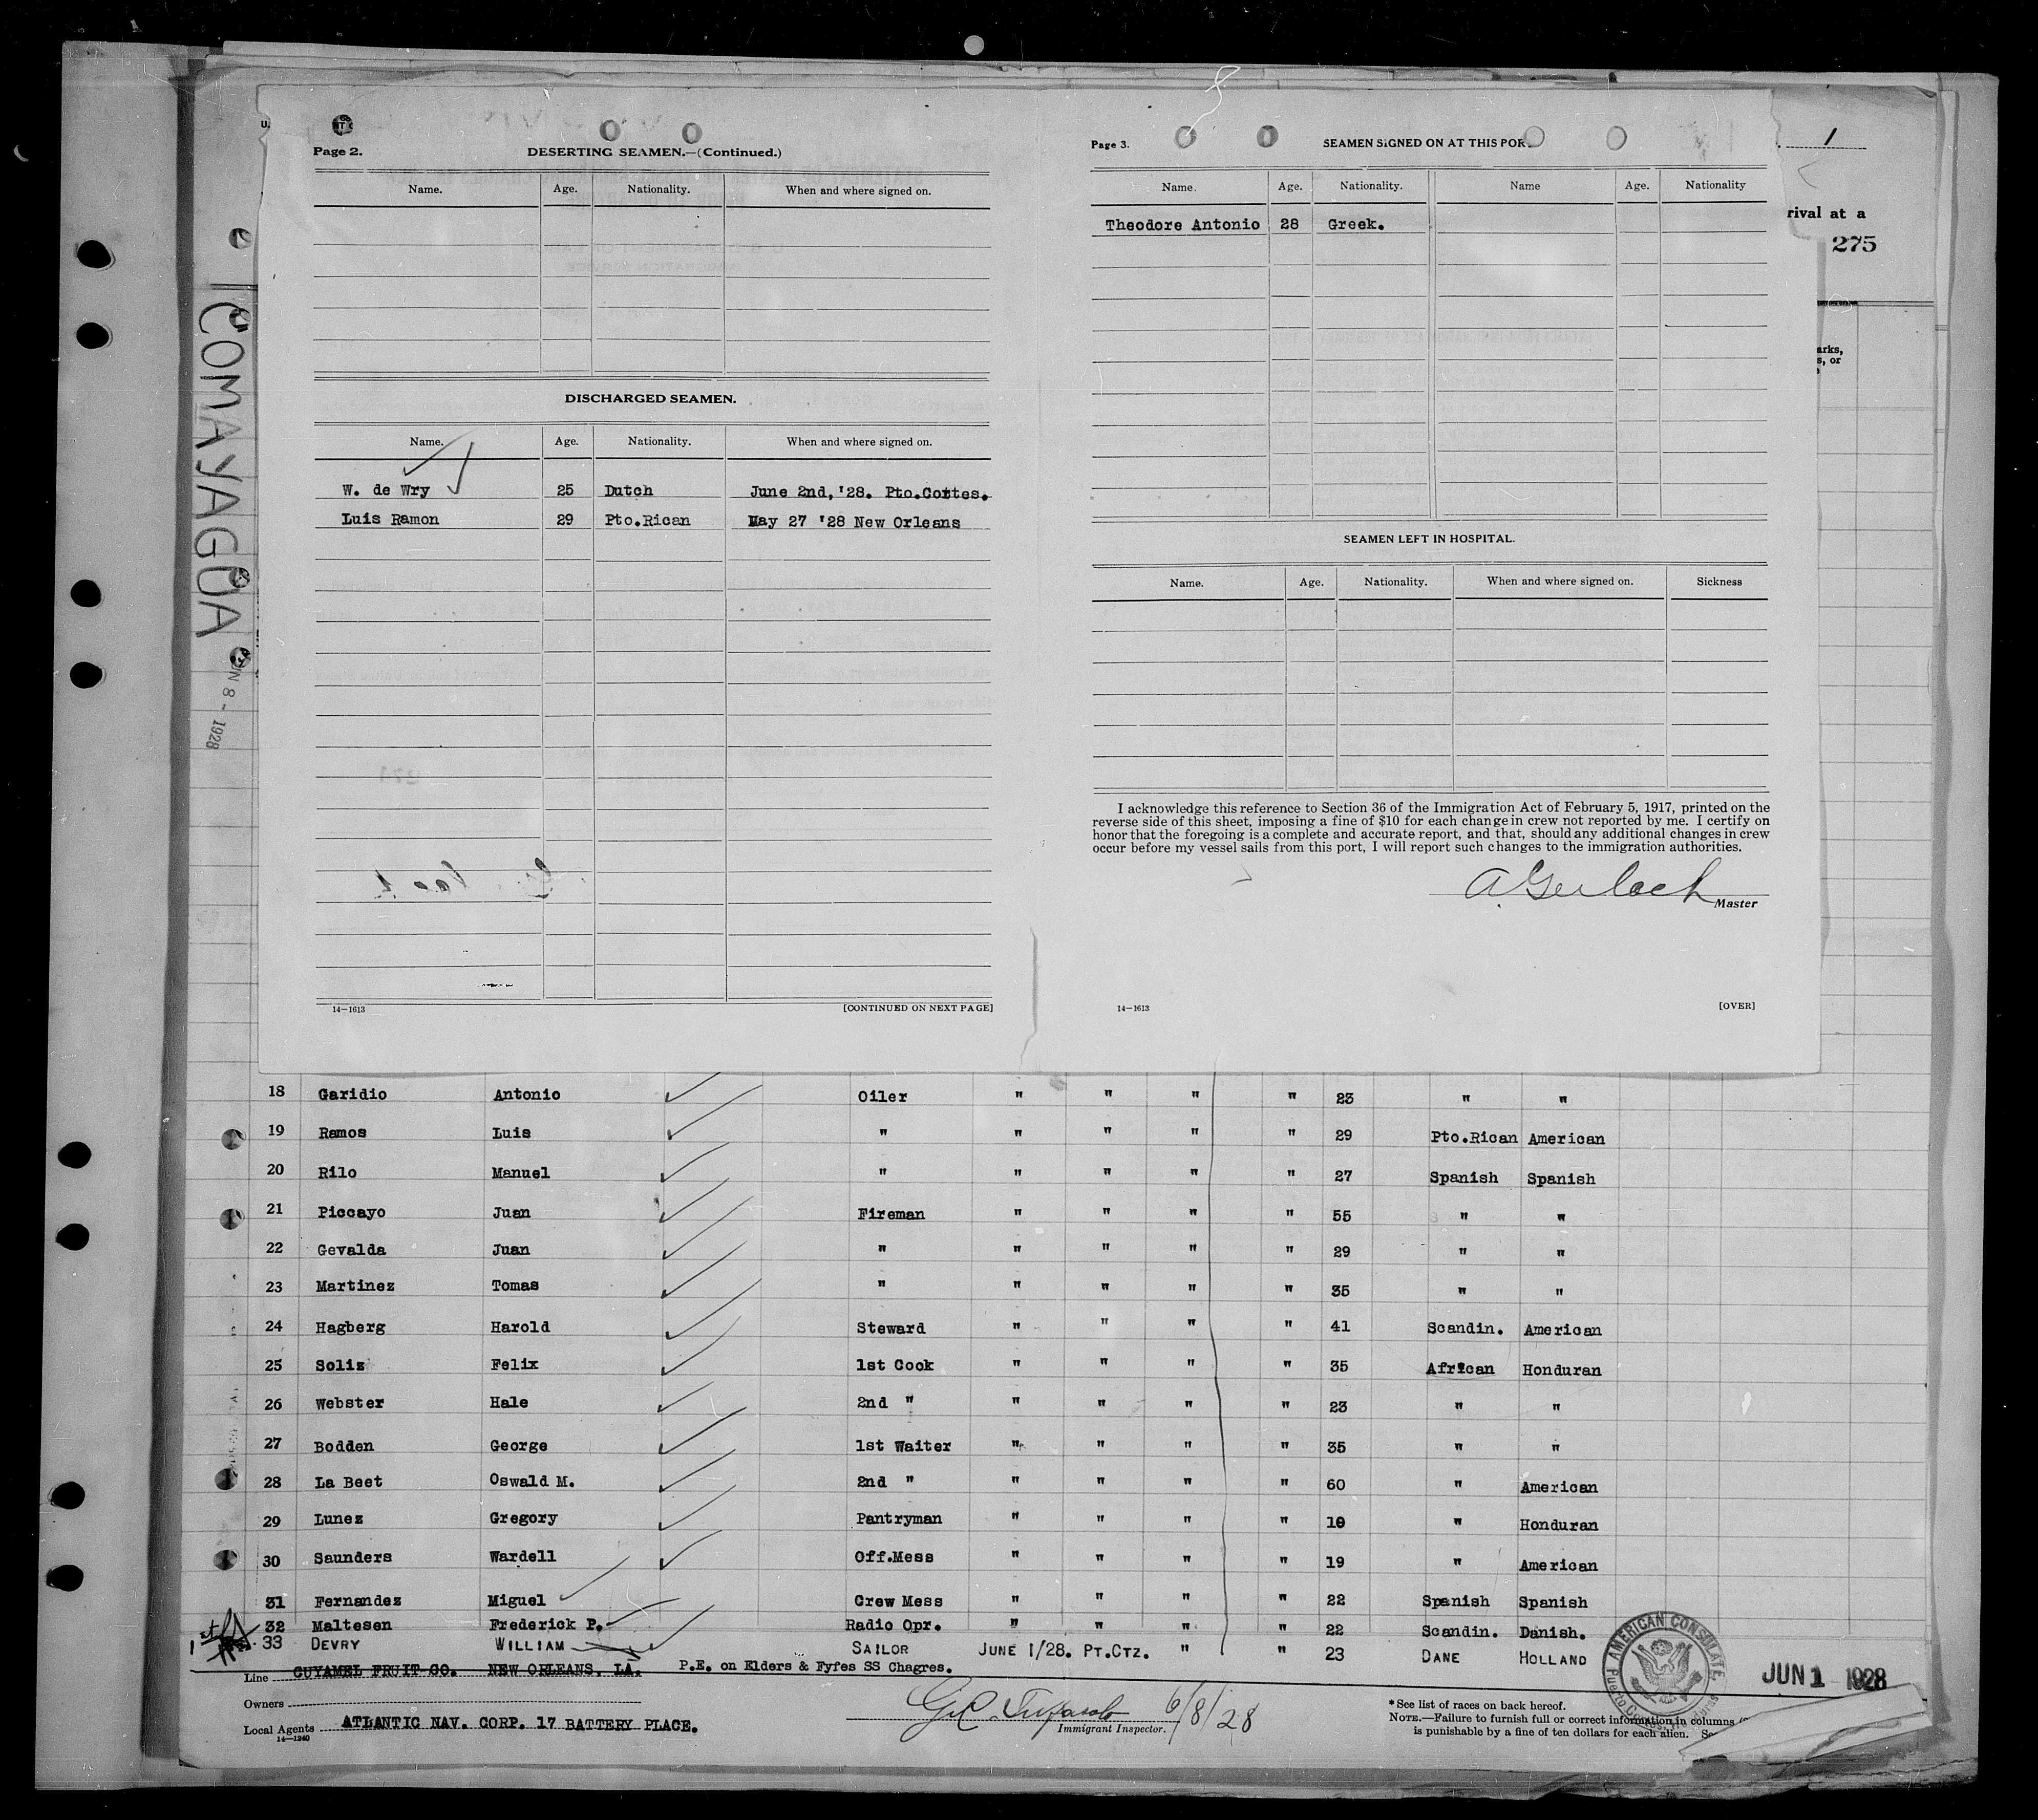 COMAYAGUA
8 - 1928
Page 2. DESERTING SEAMEN.—(Continued.)
Name. Age. Nationality. When and where signed on.
DISCHARGED SEAMEN.
Name. Age. Nationality. When and where signed on.
W. de Wry 25 Dutch June 2nd,'28. Pto.Cortes.
Luis Ramon 29 Pto.Rican May 27 '28 New Orleans
14—1613 [CONTINUED ON NEXT PAGE]
Page 3. SEAMEN SIGNED ON AT THIS POR
Name. Age. Nationality. Name Age. Nationality
Theodore Antonio 28 Greek.
SEAMEN LEFT IN HOSPITAL.
Name. Age. Nationality. When and where signed on. Sickness
I acknowledge this reference to Section 36 of the Immigration Act of February 5, 1917, printed on the
reverse side of this sheet, imposing a fine of $10 for each change in crew not reported by me. I certify on
honor that the foregoing is a complete and accurate report, and that, should any additional changes in crew
occur before my vessel sails from this port, I will report such changes to the immigration authorities.
A Gerlach
Master
14—1613 [OVER]
1
rival at a
275
arks,
s, or
18 Garidio Antonio Oiler " " " " 23 " "
19 Ramos Luis " " " " " 29 Pto.Rican American
20 Rilo Manuel " " " " " 27 Spanish Spanish
21 Piccayo Juan Fireman " " " " 55 " "
22 Gevalda Juan " " " " " 29 " "
23 Martinez Tomas " " " " " 35 " "
24 Hagberg Harold Steward " " " " 41 Scandin. American
25 Soliz Felix 1st Cook " " " " 35 African Honduran
26 Webster Hale 2nd " " " " " 23 " "
27 Bodden George 1st Waiter " " " " 35 " "
28 La Beet Oswald M. 2nd " " " " " 60 " American
29 Lunez Gregory Pantryman " " " " 10 " Honduran
30 Saunders Wardell Off.Mess " " " " 19 " American
31 Fernandez Miguel Crew Mess " " " " 22 Spanish Spanish
32 Maltesen Frederick P. Radio Opr. " " " " 22 Scandin. Danish.
1st 33 DEVRY WILLIAM SAILOR JUNE 1/28. PT.CTZ. " " 23 DANE HOLLAND
Line CUYAMEL FRUIT CO. NEW ORLEANS, LA. P.E. on Elders & Fyfes SS Chagres.
Owners
Local Agents ATLANTIC NAV. CORP. 17 BATTERY PLACE.
14—1240
6/8/28
Immigrant Inspector.
*See list of races on back hereof.
NOTE.—Failure to furnish full or correct information in columns
is punishable by a fine of ten dollars for each alien.
AMERICAN CONSULATE,
JUN 1 1928